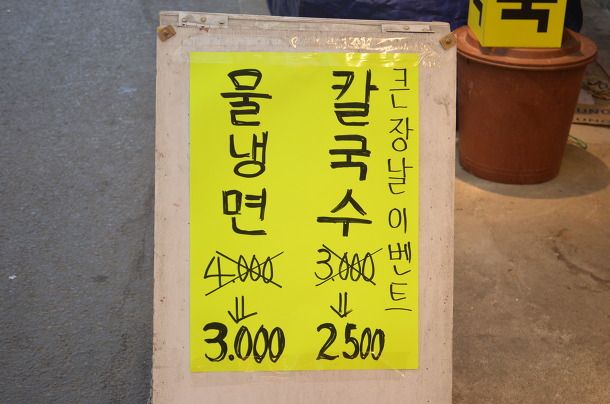 큰장날이벤트
칼국수
3.000
⇓
2500
물냉면
4.000
⇓
3.000
국